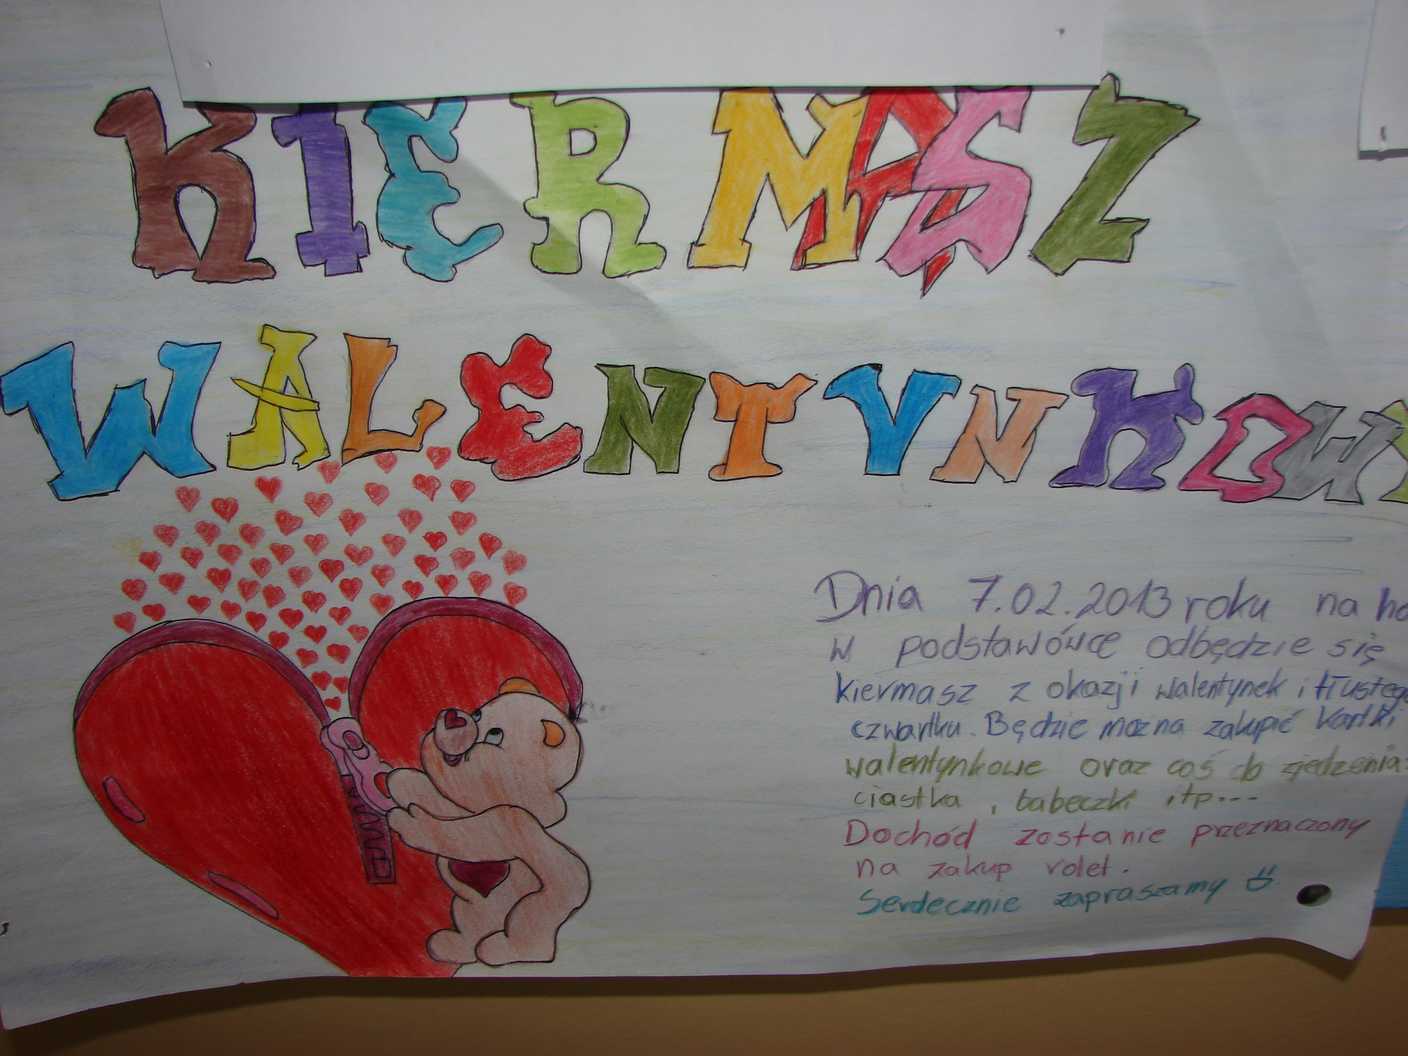 KIERMASZ
WALENTYNKOWY
Dnia 7.02.2013 roku na
w podstawówce odbędzie się
kiermasz z okazji walentynek i tłustego
czwartku. Będzie można zakupić kartki
walentynkowe oraz coś do zjedzenia:
ciastka, babeczki itp...
Dochód zostanie przeznaczony
na zakup rolet.
Serdecznie zapraszamy